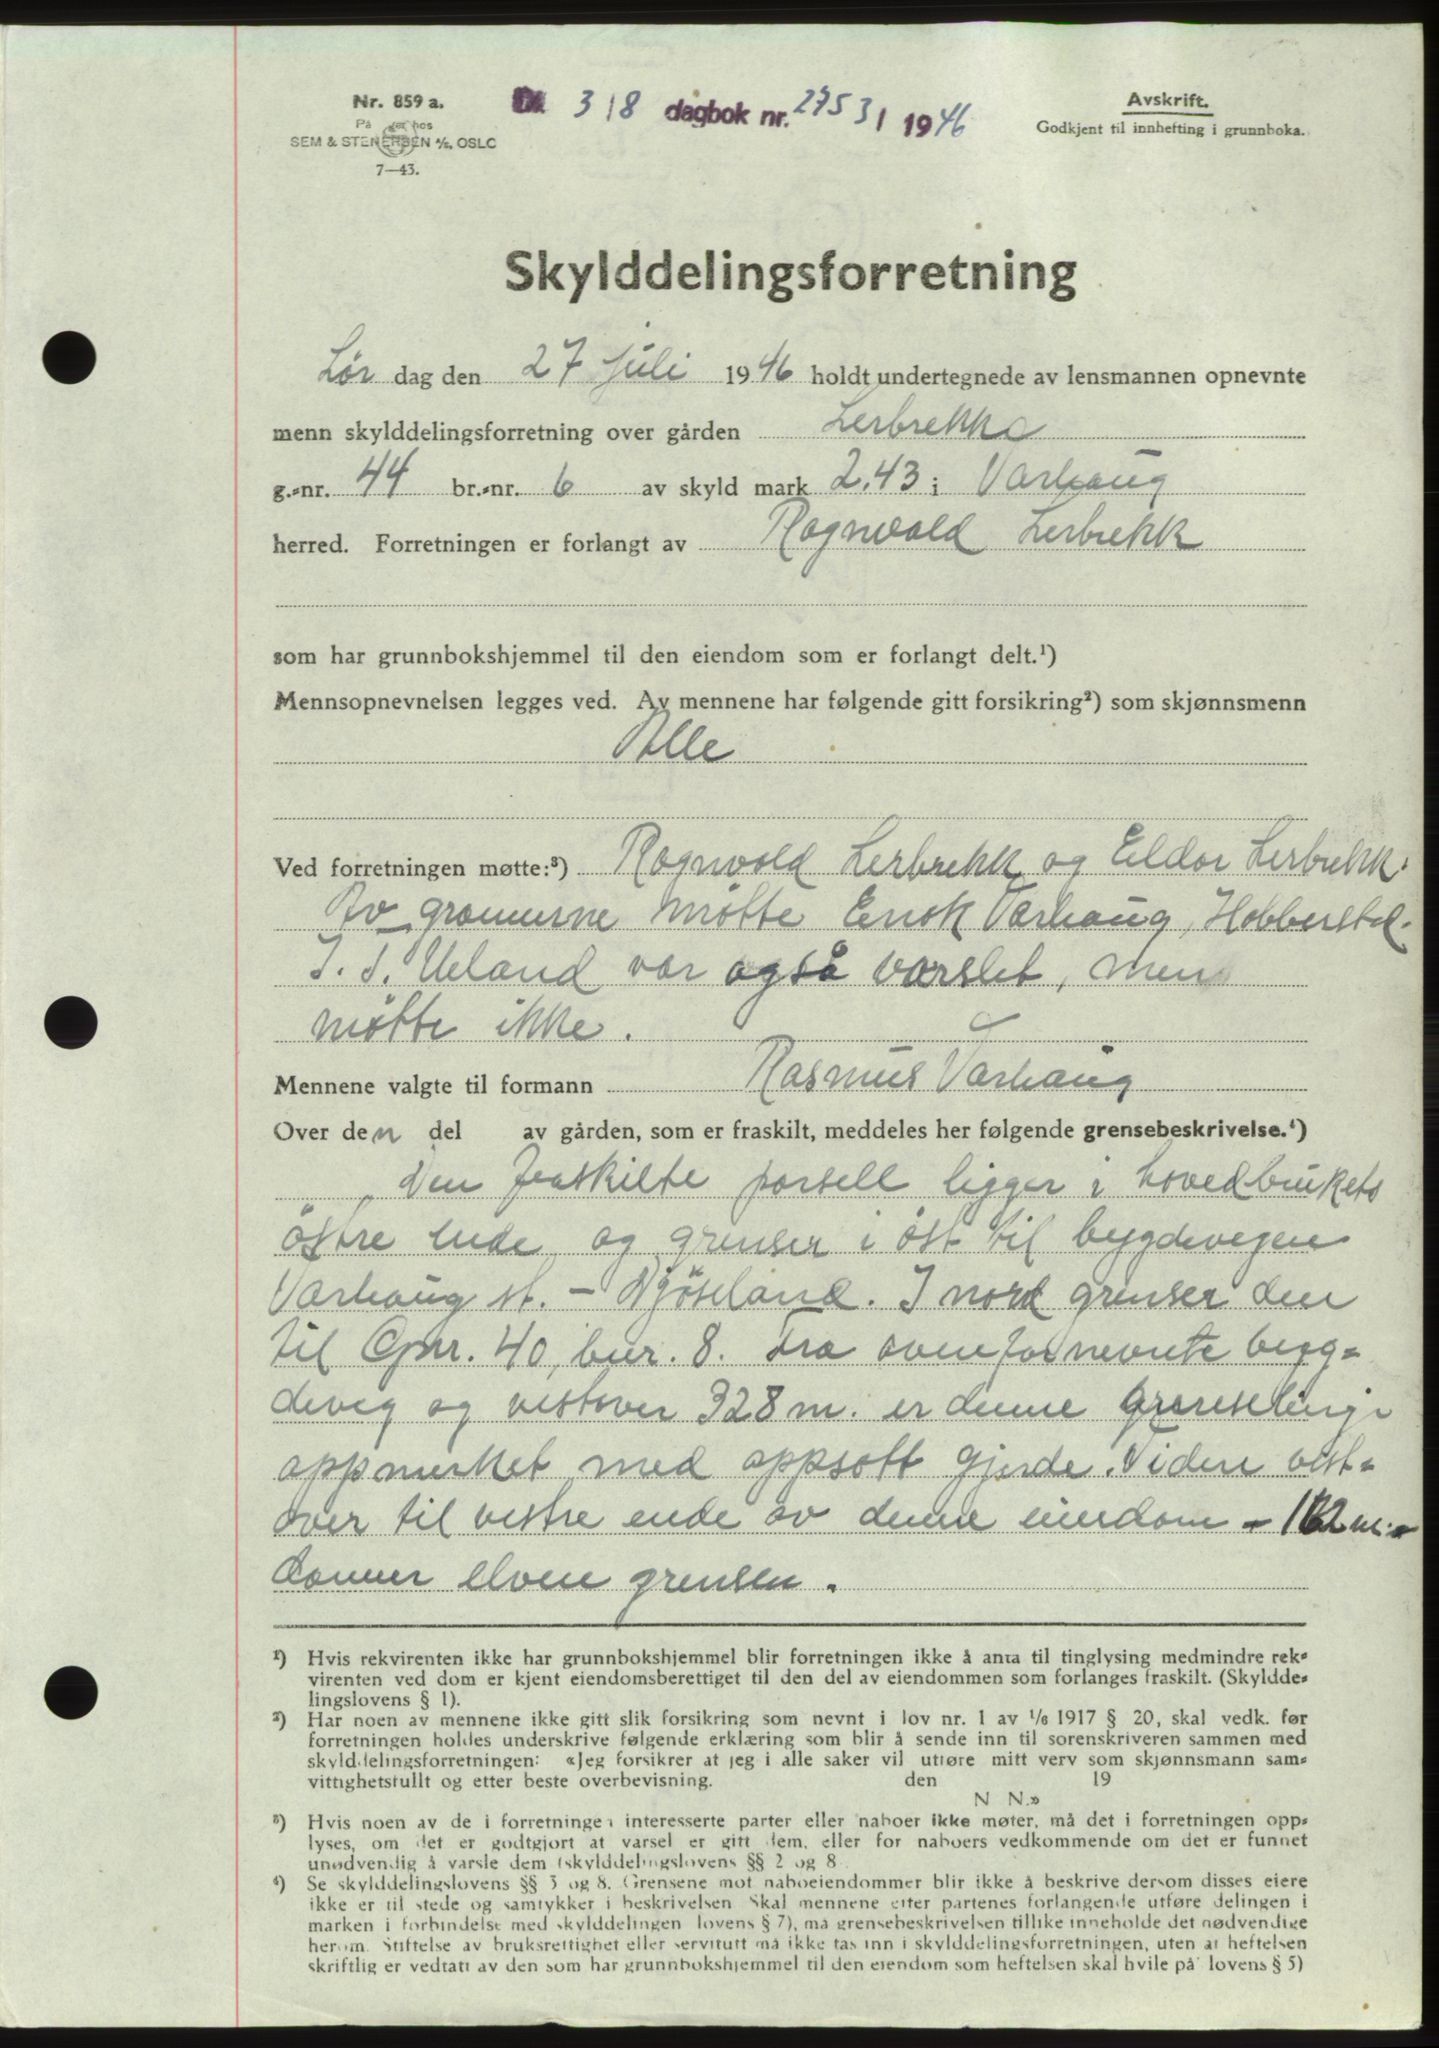 Nr. 859 a.
På lager hos
SEM & STENERSEN A/S, OSLO
7—43.
3/8 dagbok nr. 2753/1946
Avskrift.
Godkjent til innhefting i grunnboka.
Skylddelingsforretning
Lør dag den 27 juli 1946 holdt undertegnede av lensmannen opnevnte
menn skylddelingsforretning over gården Lerbrekke
g.-nr. 44 br.-nr. 6 av skyld mark 2.43 i Varhaug
herred. Forretningen er forlangt av Ragnvald Lerbrekk
som har grunnbokshjemmel til den eiendom som er forlangt delt.¹)
Mennsopnevnelsen legges ved. Av mennene har følgende gitt forsikring²) som skjønnsmenn
Alle
Ved forretningen møtte:³) Ragnvald Lerbrekk og Eldor Lerbrekk.
Av grannerne møtte Enok Varhaug, Hobberstad.
J. S. Ueland var også varslet, men
møtte ikke.
Mennene valgte til formann Rasmus Varhaug
Over den del av gården, som er fraskilt, meddeles her følgende grensebeskrivelse.⁴)
Den fraskilte parsell ligger i hovedbrukets
östre ende og grenser i öst til bygdevegen
Varhaug st. - Njöseland. I nord grenser den
til Gnr. 40, bnr. 8. Fra ovenfornevnte byg=
deveg og vestover 328 m. er denne grenselinje
oppmerket med oppsatt gjerde. Videre vest=
over til vestre ende av denne eiendom - 162 m. -
danner elven grensen.
¹) Hvis rekvirenten ikke har grunnbokshjemmel blir forretningen ikke å anta til tinglysing medmindre rek-
virenten ved dom er kjent eiendomsberettiget til den del av eiendommen som forlanges fraskilt. (Skyldde-
lingslovens § 1).
²) Har noen av mennene ikke gitt slik forsikring som nevnt i lov nr. 1 av 1/6 1917 § 20, skal vedk. før
forretningen holdes underskrive følgende erklæring som blir å sende inn til sorenskriveren sammen med
skylddelingsforretningen: «Jeg forsikrer at jeg i alle saker vil utføre mitt verv som skjønnsmann sam-
vittighetsfullt og etter beste overbevisning. den 19
N N.»
³) Hvis noen av de i forretningen interesserte parter eller naboer ikke møter, må det i forretningen opp-
lyses, om det er godtgjort at varsel er gitt dem, eller for naboers vedkommende om det er funnet
unødvendig å varsle dem (skylddelingslovens §§ 2 og 8
⁴) Se skylddelingslovens §§ 3 og 8. Grensene mot naboeiendommer blir ikke å beskrive dersom disses eiere
ikke er til stede og samtykker i beskrivelsen Skal mennene etter partenes forlangende utføre delingen i
marken i forbindelse med skylddelingen lovens § 7), må grensebeskrivelsen tillike inneholde det nødvendige
herom. Stiftelse av bruksrettighet eller servitutt må ikke tas inn i skylddelingsforretningen, uten at heftelsen
skriftlig er vedtatt av den som har grunnbokshjemmel til den eiendom som heftelsen skal hvile på lovens § 5)